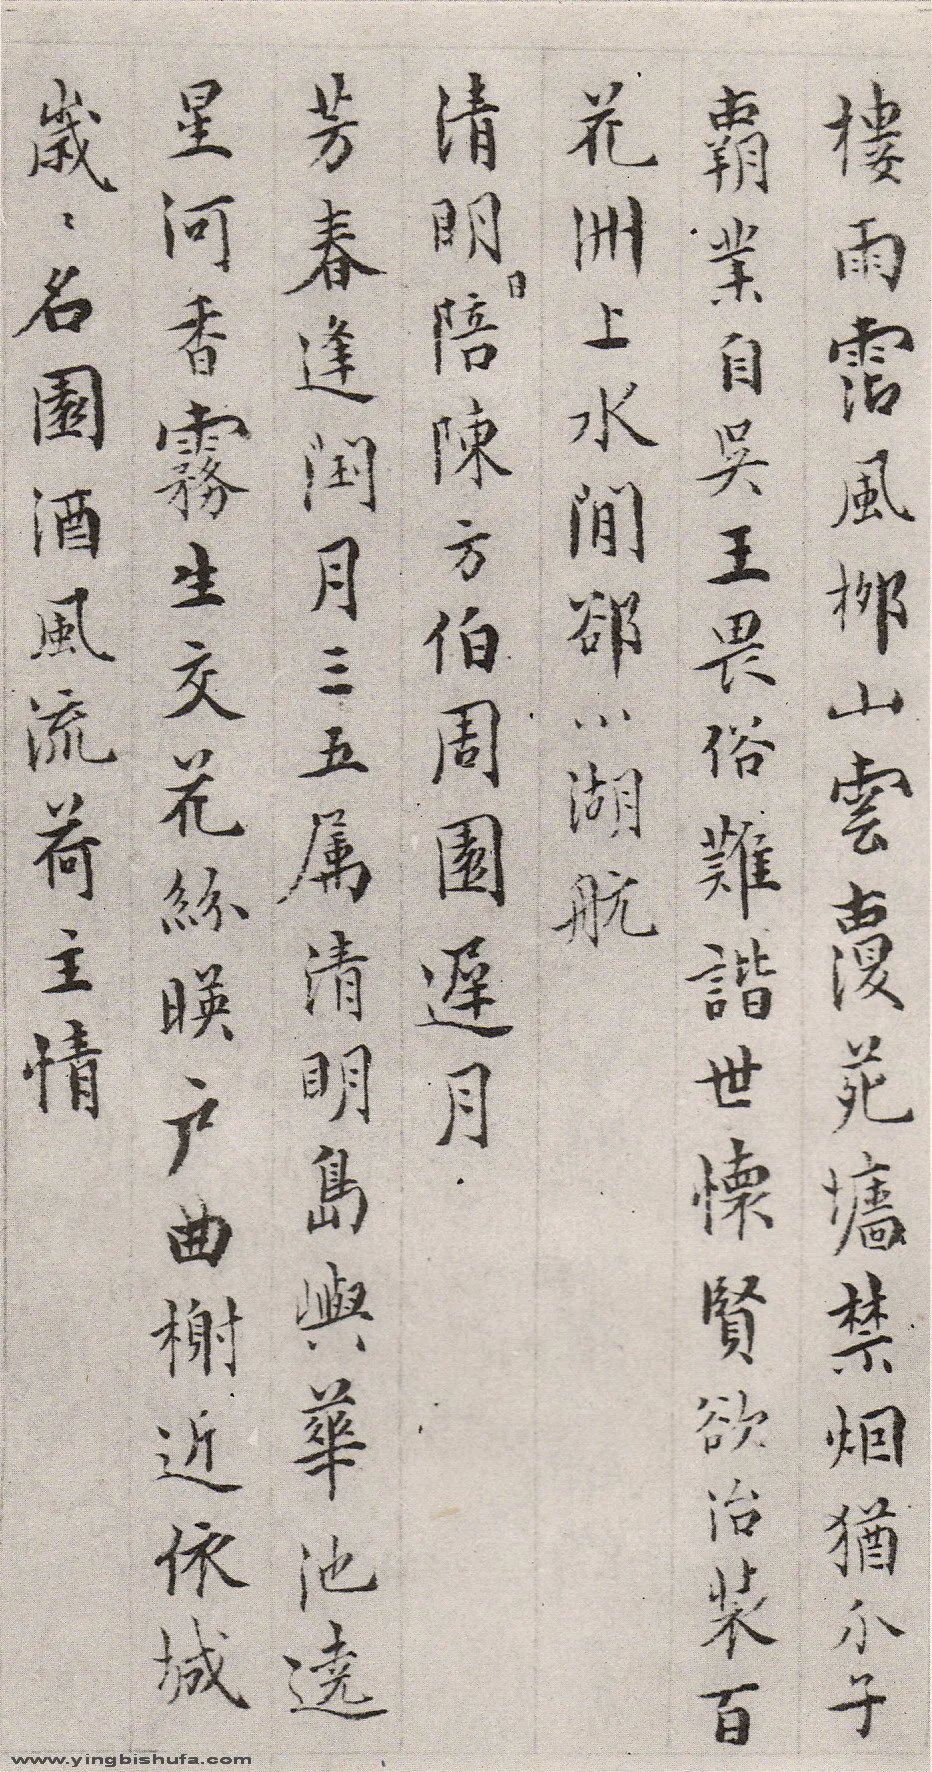 樓雨霑風柳山雲覆苑墻禁烟猶尒子
霸業自吳王畏俗難諧世懷賢欲治裝百
花洲上水間郤小湖航
清明日陪陳方伯周園遲月
芳春逢閏月三五属清明島嶼華池遶
星河香霧生交花絲暎户曲榭近依城
歲〻名園酒風流荷主情
www.yingbishufa.com